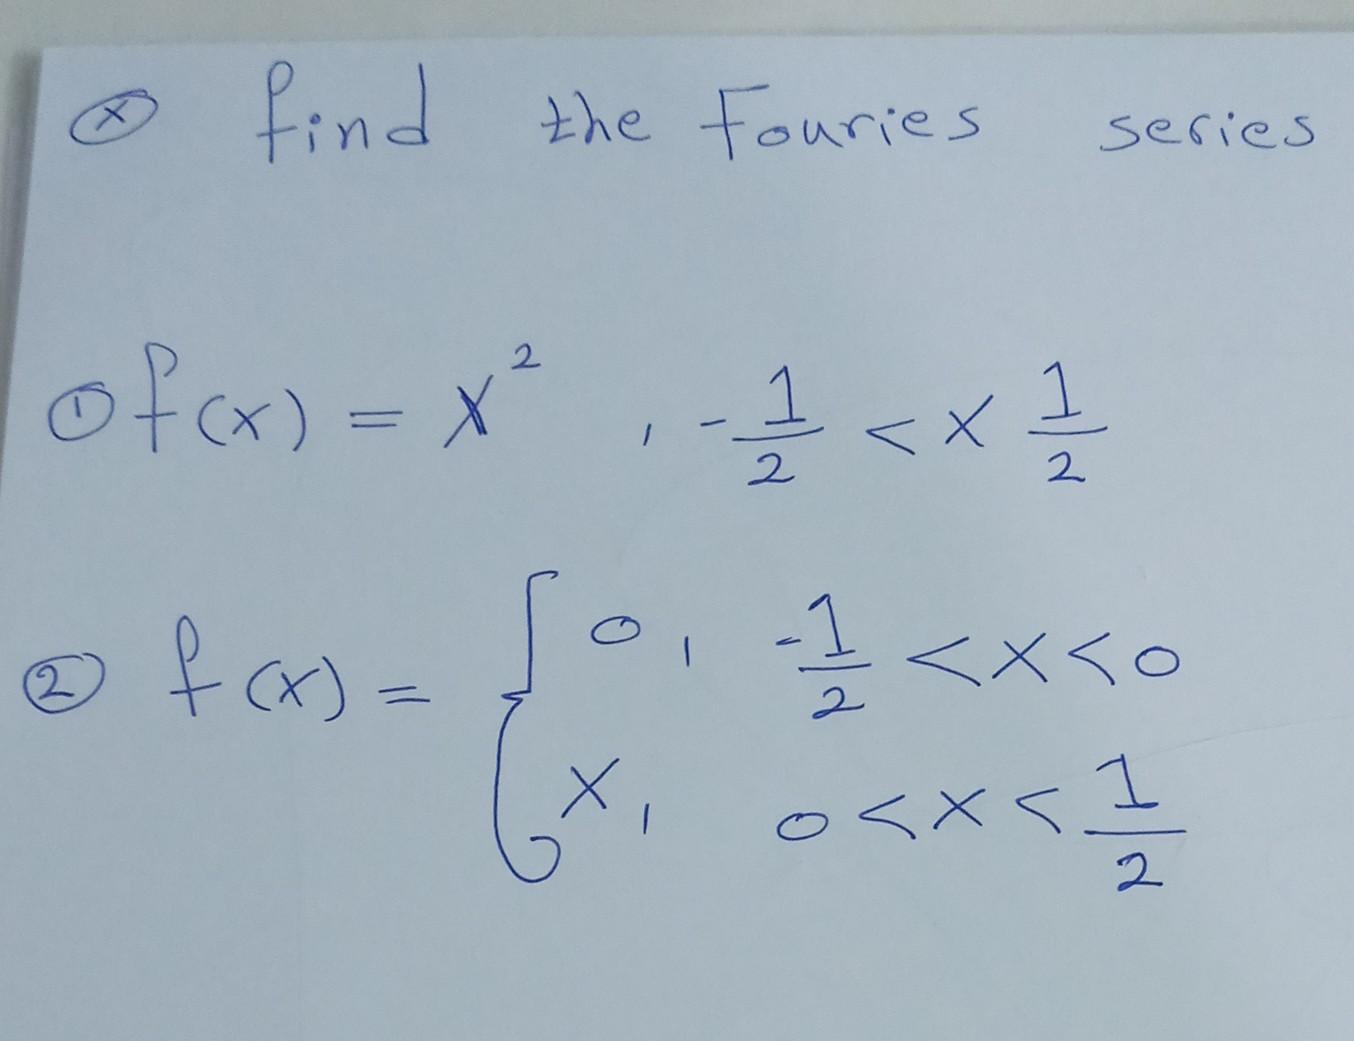 ⓧ find the Fouries series
① f(x) = x² , -1/2 < x 1/2
② f(x) = { 0, -1/2 < x < 0
x, 0 < x < 1/2